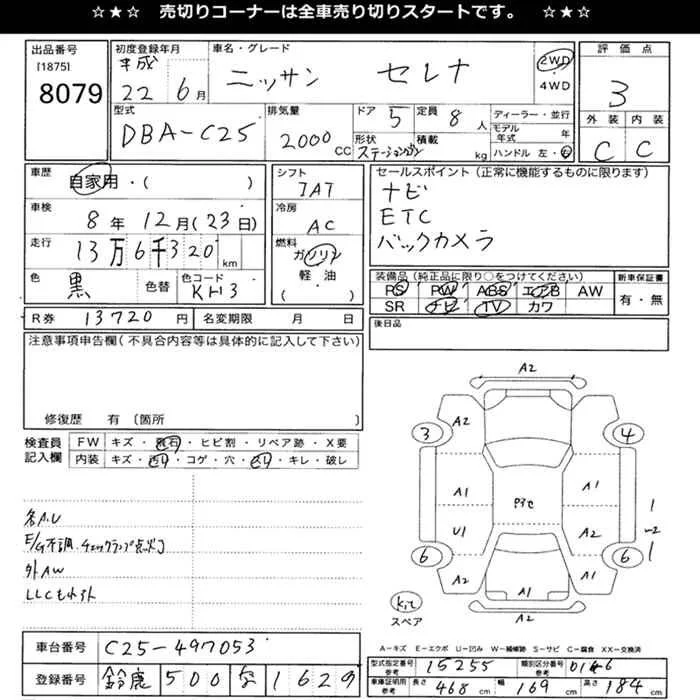 ☆★☆ 売切りコーナーは全車売り切りスタートです。 ☆★☆
出品番号
[1875]
8079
初度登録年月
平成
22 6月
車名・グレード
ニッサン セレナ
2WD
4WD
評価点
3
外装 内装
C C
型式
DBA-C25
排気量
2000 CC
ドア 5
定員 8 人
形状
ステーションワゴン
積載 kg
ディーラー・並行
モデル年式 年
ハンドル 左・右
車歴
自家用・( )
シフト
IAT
セールスポイント(正常に機能するものに限ります)
ナビ
ETC
バックカメラ
車検
8年 12月(23日)
冷房
AC
走行
13万6千320 km
燃料
ガソリン
軽油
( )
色
黒
色替
色コード
KH3
装備品(純正品に限り○をつけてください)
PS PW ABS エアB AW
SR ナビ TV カワ
新車保証書
有・無
R券 13720円
名変期限 月 日
後日品
注意事項申告欄(不具合内容等は具体的に記入して下さい)
修復歴 有 〔箇所 〕
検査員記入欄
FW キズ・飛石・ヒビ割・リペア跡・X要
内装 キズ・汚れ・コゲ・穴・スリ・キレ・破レ
各A.U
E/G不調・チェックランプ点灯
外AW
LLCもれ
A2
A2
3
4
A1
A1
P3C
U1
A2
1
6
6
A2
A1
A2
A2
スペア
A-キズ E-エクボ U-凹み W-補修跡 S-サビ C-腐食 XX-交換済
車台番号 C25-497053
型式指定番号 参考 15255
類別区分番号 参考 0146
登録番号 鈴鹿 500 な 1629
車庫証明用 参考 長さ 468 cm 幅 169 cm 高さ 184 cm